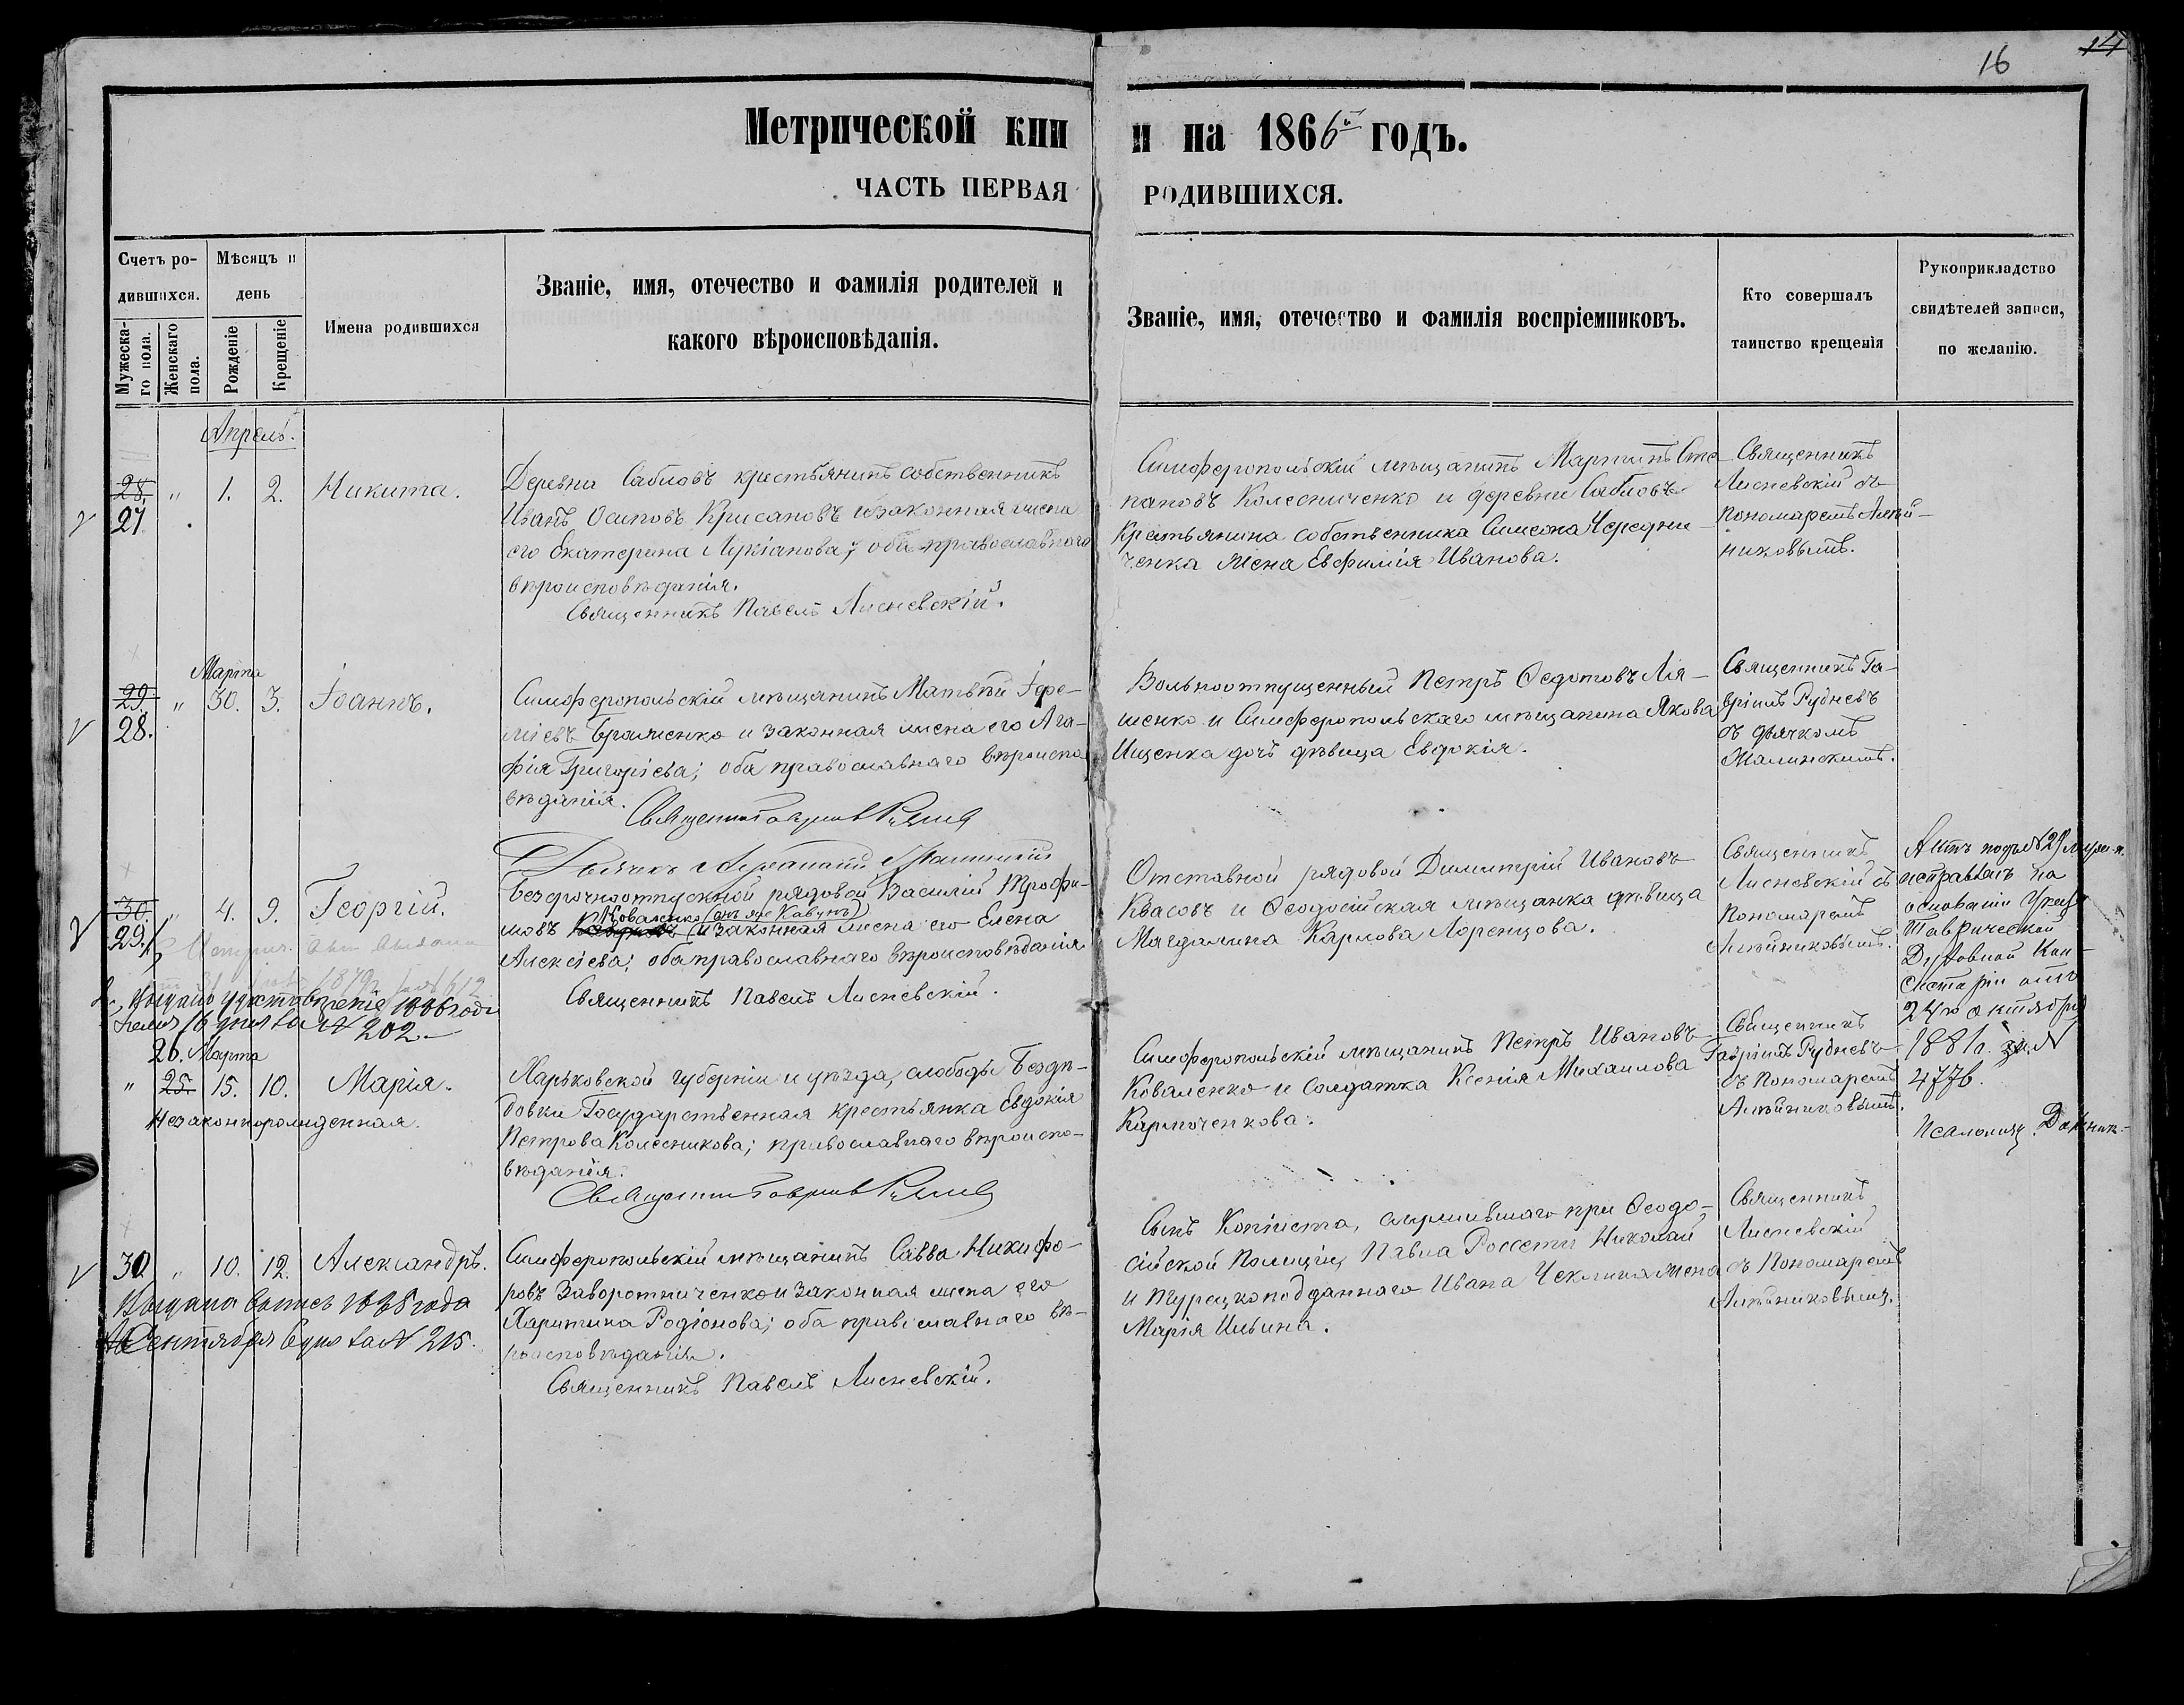 16
14
Метрической кни
и на 1866й годъ.
ЧАСТЬ ПЕРВАЯ
РОДИВШИХСЯ.
Счетъ ро-
дившихся.
Мужеска-
го пола.
Женскаго
пола.
Мѣсяцъ и
день
Рожденіе
Крещеніе
Имена родившихся
Званіе, имя, отечество и фамилія родителей и
какого вѣроисповѣданія.
Званіе, имя, отечество и фамилія воспріемниковъ.
Кто совершалъ
таинство крещенія
Рукоприкладство
свидѣтелей записи,
по желанію.
Апрель.
28. " 1. 2. Никита.
27
Деревни Сабловъ крестьянинъ собственникъ
Иванъ Осиповъ Крисановъ и законная жена
его Екатерина Лукіанова; оба православнаго
вѣроисповѣданія.
Священникъ Павелъ Лисневскій.
Симферопольскій мѣщанинъ Мартинъ Сте-
пановъ Колесниченко и деревни Сабловъ
Крестьянина собственника Симеона Чередни-
ченка жена Евфимія Иванова.
Священникъ
Лисневскій съ
Пономаремъ Алѣй-
никовымъ.
Марта
29. " 30. 3. Іоаннъ.
28.
Симферопольскій мѣщанинъ Матвѣй Іере-
міевъ Ерошенко и законная жена его Ага-
фія Григорієва; оба православнаго вѣроиспо-
вѣданія.
Священникъ Гавріилъ Рудневъ
Вольноотпущенный Петръ Ѳедотовъ Ля-
шенко и Симферопольскаго мѣщанина Якова
Ищенка дочь дѣвица Евдокія.
Священникъ Га-
вріилъ Рудневъ
съ дьячкомъ
Жалинскимъ.
30. " 4. 9. Георгій.
29.
Безсрочноотпускной рядовой Василій Трофи-
мовъ Коваленко (онъ же Кавунъ) и законная жена его Елена
Алексіева; оба православнаго вѣроисповѣданія
Священникъ Павелъ Лисневскій.
Отставной рядовой Димитрій Ивановъ
Квасовъ и Ѳеодосійская мѣщанка дѣвица
Магдалина Карлова Лоренцова.
Священникъ
Лисневскій съ
Пономаремъ
Алѣйниковымъ.
Актъ подъ № 29 муж. п.
исправленъ на
основаніи Указа
Таврической
Духовной Кон-
систоріи отъ
24го октября
1881 г. за №
4776.
1879
612
Выдано удостовѣреніе 1886 года
16 дня за № 202.
26. Марта
" 25. 15. 10. Марія.
Незаконнорожденная.
Харьковской губерніи и уѣзда, слободы Безлю-
довки Государственная крестьянка Евдокія
Петрова Колесникова; православнаго вѣроиспо-
вѣданія.
Священникъ Гавріилъ Рудневъ
Симферопольскій мѣщанинъ Петръ Ивановъ
Коваленко и Солдатка Ксенія Михаилова
Кирпоченкова.
Священникъ
Гавріилъ Рудневъ
съ Пономаремъ
Алѣйниковымъ.
30 " 10. 12. Александръ.
Выдана выпись 1888 года
Сентября 6 дня за № 215.
Симферопольскій мѣщанинъ Савва Никифо-
ровъ Заворотниченко и законная жена его
Харитина Родіонова; оба православнаго вѣ-
роисповѣданія.
Священникъ Павелъ Лисневскій.
Сынъ Копіиста, служившаго при Ѳеодо-
сійской Полиціи, Павла Россети Николай
и турецкоподданнаго Ивана Чеклина жена
Марія Ильина.
Священникъ
Лисневскій
съ Пономаремъ
Алѣйниковымъ.